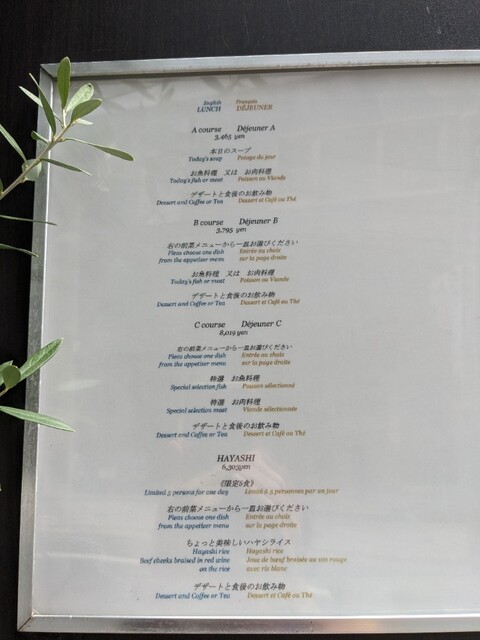 English Français
LUNCH DÉJEUNER
A course Déjeuner A
3,465 yen
本日のスープ
Today's soup Potage du jour
お魚料理 又は お肉料理
Today's fish or meat Poisson ou Viande
デザートと食後のお飲み物
Dessert and Coffee or Tea Dessert et Café ou Thé
B course Déjeuner B
3,795 yen
右の前菜メニューから一皿お選びください
Pleas choose one dish Entrée au choix
from the appetizer menu sur la page droite
お魚料理 又は お肉料理
Today's fish or meat Poisson ou Viande
デザートと食後のお飲み物
Dessert and Coffee or Tea Dessert et Café ou Thé
C course Déjeuner C
8,019 yen
右の前菜メニューから一皿お選びください
Pleas choose one dish Entrée au choix
from the appetizer menu sur la page droite
特選 お魚料理
Special selection fish Poisson sélectionné
特選 お肉料理
Special selection meat Viande sélectionnée
デザートと食後のお飲み物
Dessert and Coffee or Tea Dessert et Café ou Thé
HAYASHI
6,303yen
《限定5食》
Limited 5 persons for one day Limité à 5 personnes par un jour
右の前菜メニューから一皿お選びください
Pleas choose one dish Entrée au choix
from the appetizer menu sur la page droite
ちょっと美味しいハヤシライス
Hayashi rice Hayashi rice
Beef cheeks braised in red wine Joue de bœuf braisée au vin rouge
on the rice avec riz blanc
デザートと食後のお飲み物
Dessert and Coffee or Tea Dessert et Café ou Thé